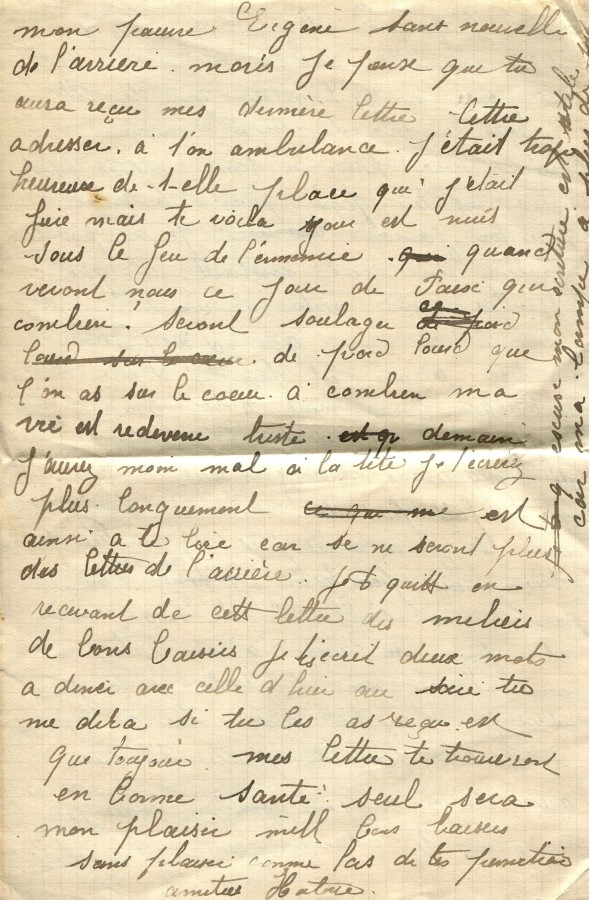 mon pauvre Eugène sans nouvelle
de l'arrière. mais je pense que tu
aura reçu mes dernière lettre lettre
adresser. a l'on ambulance. j'était trop
heureuse de t-elle place que j'était
fere mais te voila jour est nuis
sous le feu de l'ennemie. qui quand
veront nous ce jour de Paix que
combien! seront soulager ce
de poid lourd que
l'on as sur le coeur. a combien ma
vie est redevene triste. demain
j'aurez moin mal a la tête je t'écrirez
plus longuement ce que me est
ainsi a te lire car se ne seront plus
des lettres de l'arrière. je t quitt en
recevant de cett lettre des milieis
de bons baisers je t'écrit deux mots
a dimei avec celle d'hier au soire tu
me dira si tu les as reçu. est
que toujour mes lettre te trouveront
en bonne santé. seul sera
mon plaisir mill bons baisers
sans plaisir comme pas de tes
amitier
escuse mon écriture
car ma lampe a plus de